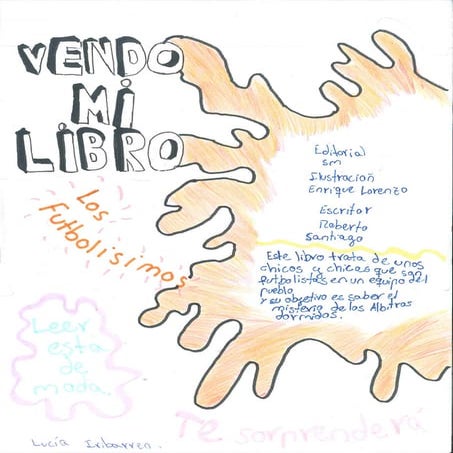 VENDO
MI
LIBRO
Los
futbolisimos
Editorial
sm
Ilustracion
Enrique Lorenzo
Escritor
Roberto
Santiago
Este libro trata de unos
chicos y chicas que san
futbolistas en un equipo del
pueblo
y su objetivo es saber el
misterio de los Albitros
dormidos.
Leer
esta
de
moda.
Te sorprenderá
Lucía Iribarren.